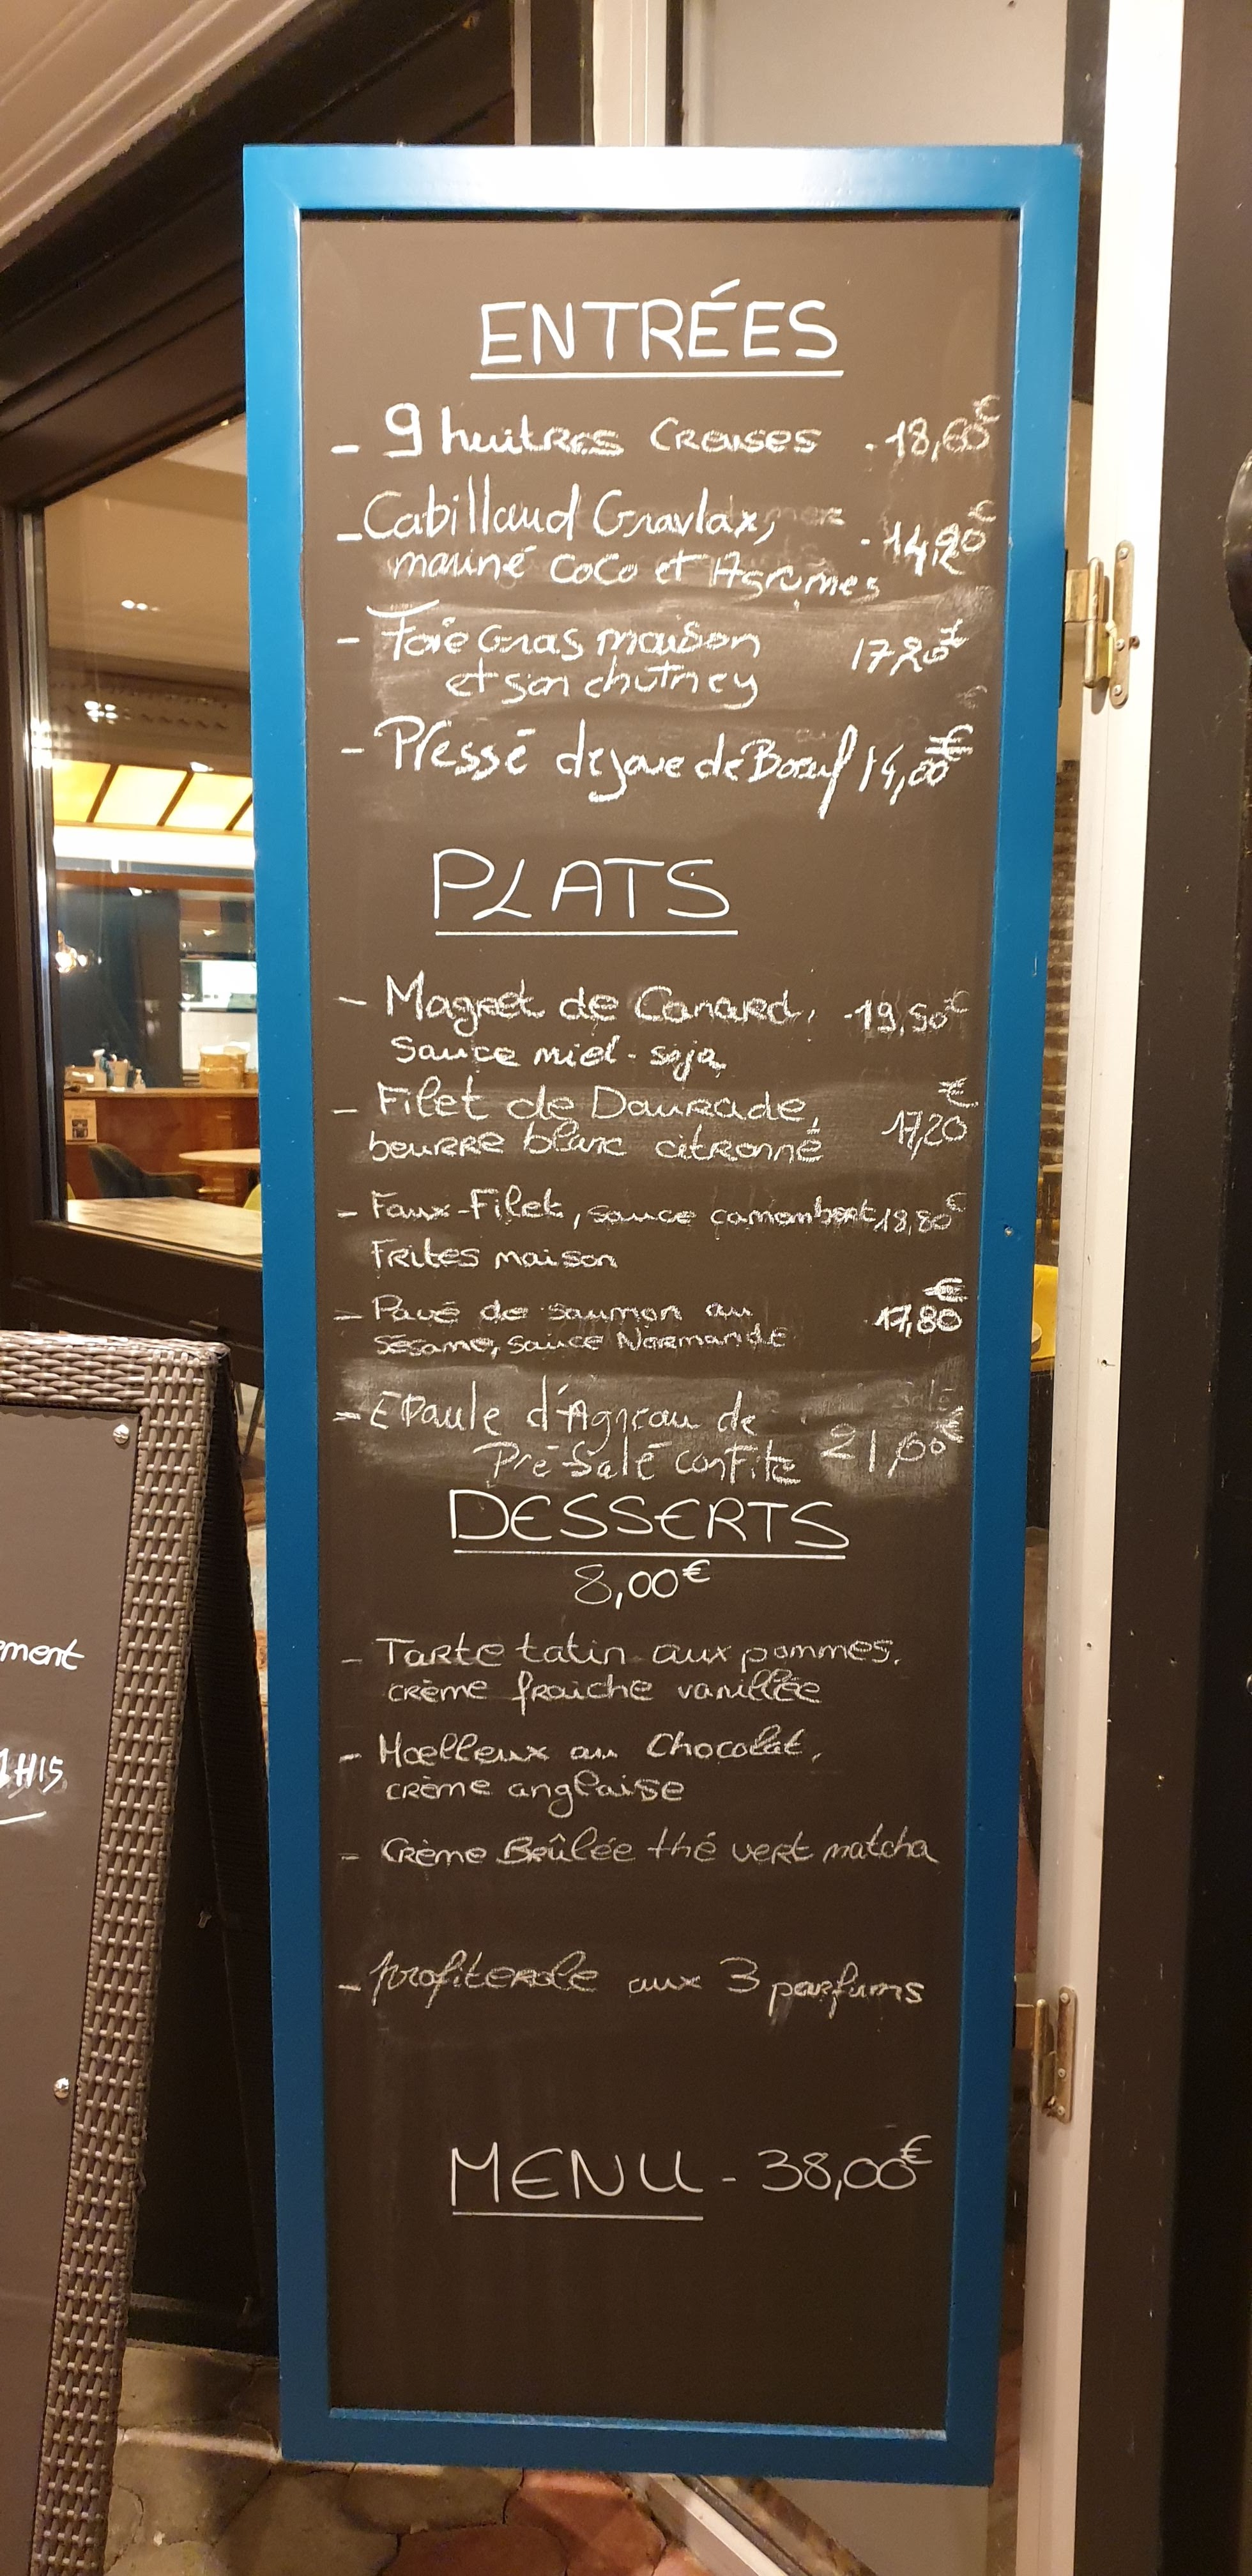 ENTRÉES
- 9 huitres Creuses - 18,60€
- Cabillaud Gravlax,
mariné coco et Agrumes
- Foie Gras maison 17,20€
et son chutney
- Pressé de joue de Boeuf 14,00€
PLATS
- Magret de Canard, - 19,50€
Sauce miel - soja
- Filet de Daurade, 17,20€
beurre blanc citronné
- Faux-Filet, sauce camembert 18,80€
Frites maison
- Pavé de saumon au 17,80€
sésame, sauce Normande
- Epaule d'Agneau de 21,00€
Pré-Salé confite
DESSERTS
8,00€
- Tarte tatin aux pommes,
crème fraiche vanillée
- Moelleux au Chocolat,
crème anglaise
- Crème Brûlée thé vert matcha
- profiterole aux 3 parfums
MENU - 38,00€
ement
1H15